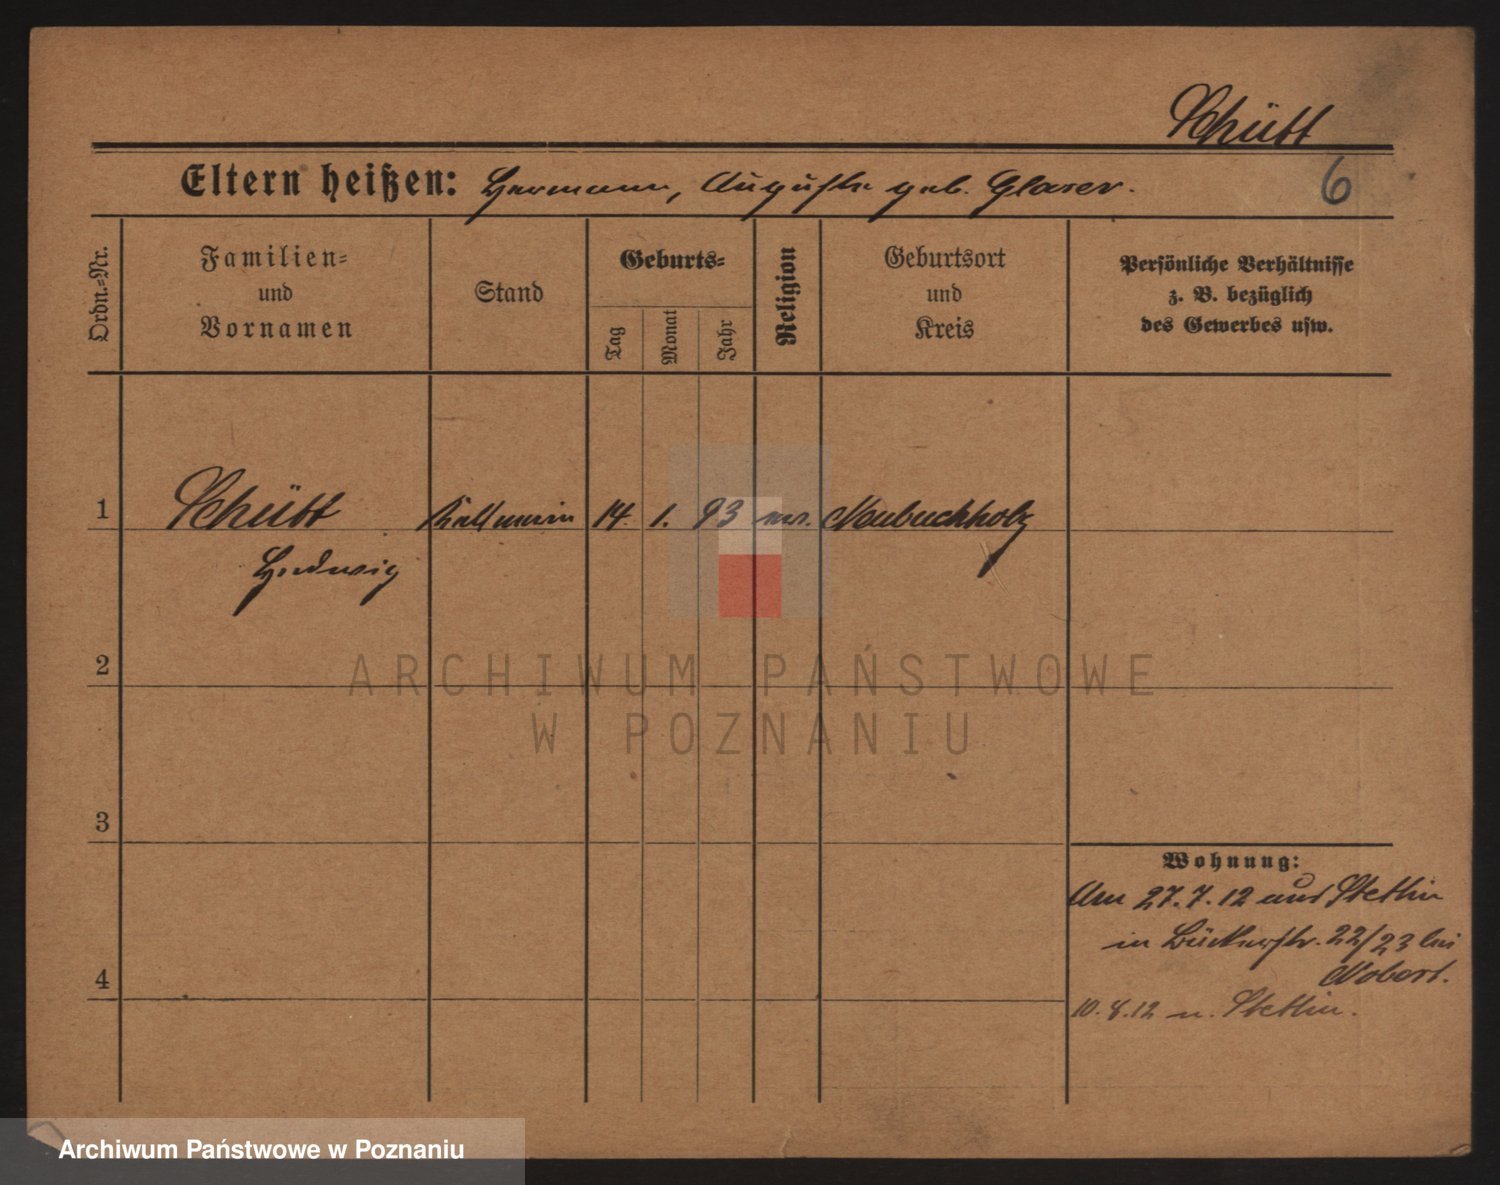 Schütt
Eltern heißen: Hermann, Auguste geb. Glaser.
6
Ordn.-Nr.
Familien-
und
Vornamen
Stand
Geburts-
Tag
Monat
Jahr
Religion
Geburtsort
und
Kreis
Persönliche Verhältnisse
z. B. bezüglich
des Gewerbes usw.
1 Schütt 14. 1. 93 Neubuchholz
Hedwig
2
ARCHIWUM PAŃSTWOWE
W POZNANIU
3
Wohnung:
Am 27.7.12 aus Stettin
in 22/23 bei
4
10.8.12 n. Stettin.
Archiwum Państwowe w Poznaniu